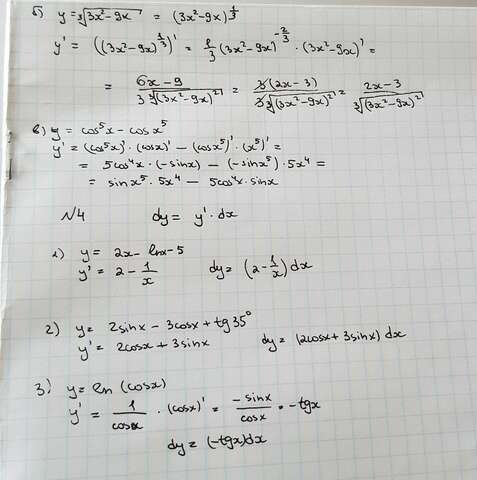 б) y = ∛(3x²-9x) = (3x²-9x)^(1/3)
y' = ((3x²-9x)^(1/3))' = 1/3 (3x²-9x)^(-2/3) · (3x²-9x)' =
= (6x-9)/(3∛(3x²-9x)²) = (3(2x-3))/(3∛(3x²-9x)²) = (2x-3)/(∛(3x²-9x)²)
в) y = cos⁵x - cosx⁵
y' = (cos⁵x)' · (cosx)' - (cosx⁵)' · (x⁵)' =
= 5cos⁴x · (-sinx) - (-sinx⁵) · 5x⁴ =
= sinx⁵ · 5x⁴ - 5cos⁴x · sinx
N4 dy = y' · dx
1) y = 2x - lnx - 5
y' = 2 - 1/x dy = (2 - 1/x) dx
2) y = 2sinx - 3cosx + tg35°
y' = 2cosx + 3sinx dy = (2cosx + 3sinx) dx
3) y = ln (cosx)
y' = 1/cosx · (cosx)' = -sinx/cosx = -tgx
dy = (-tgx)dx